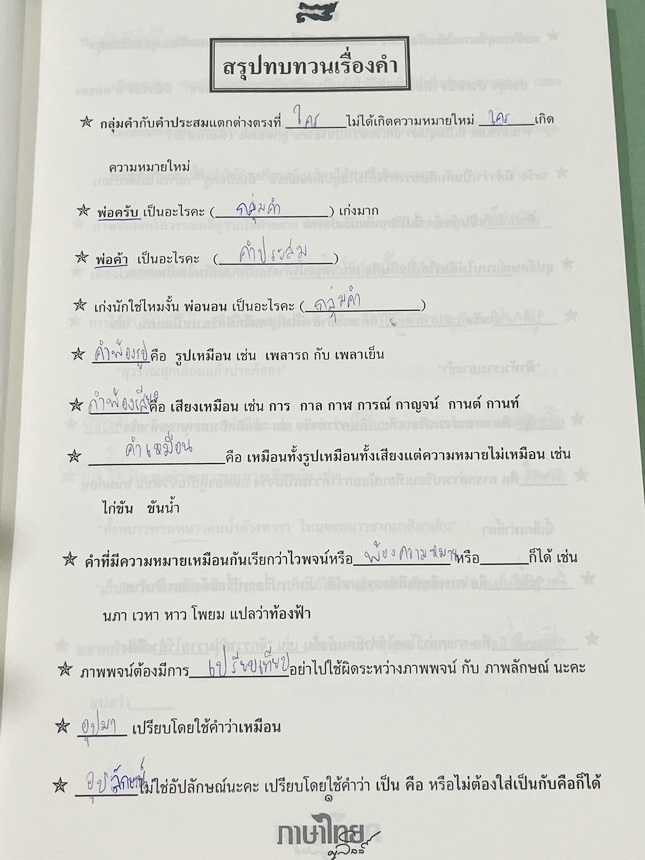 สรุปทบทวนเรื่องคำ
✯ กลุ่มคำกับคำประสมแตกต่างตรงที่ ใคร ไม่ได้เกิดความหมายใหม่ ใคร เกิด
ความหมายใหม่
✯ พ่อครับ เป็นอะไรคะ (กลุ่มคำ) เก่งมาก
✯ พ่อค้า เป็นอะไรคะ (คำประสม)
✯ เก่งนักใช่ไหมงั้น พ่อนอน เป็นอะไรคะ (กลุ่มคำ)
✯ คำพ้องรูป คือ รูปเหมือน เช่น เพลารถ กับ เพลาเย็น
✯ คำพ้องเสียง คือ เสียงเหมือน เช่น การ กาล กาฬ การณ์ กาญจน์ กานต์ กานท์
✯ คำเหมือน คือ เหมือนทั้งรูปเหมือนทั้งเสียงแต่ความหมายไม่เหมือน เช่น
ไก่ขัน ขันน้ำ
✯ คำที่มีความหมายเหมือนกันเรียกว่าไวพจน์หรือ พ้องความหมาย หรือ______ก็ได้ เช่น
นภา เวหา หาว โพยม แปลว่าท้องฟ้า
✯ ภาพพจน์ต้องมีการ เปรียบเทียบ อย่าไปใช้ผิดระหว่างภาพพจน์ กับ ภาพลักษณ์ นะคะ
✯ อุปมา เปรียบโดยใช้คำว่าเหมือน
✯ อุปลักษณ์ ไม่ใช่อัปลักษณ์นะคะ เปรียบโดยใช้คำว่า เป็น คือ หรือไม่ต้องใส่เป็นกับคือก็ได้
๑
ภาษาไทย